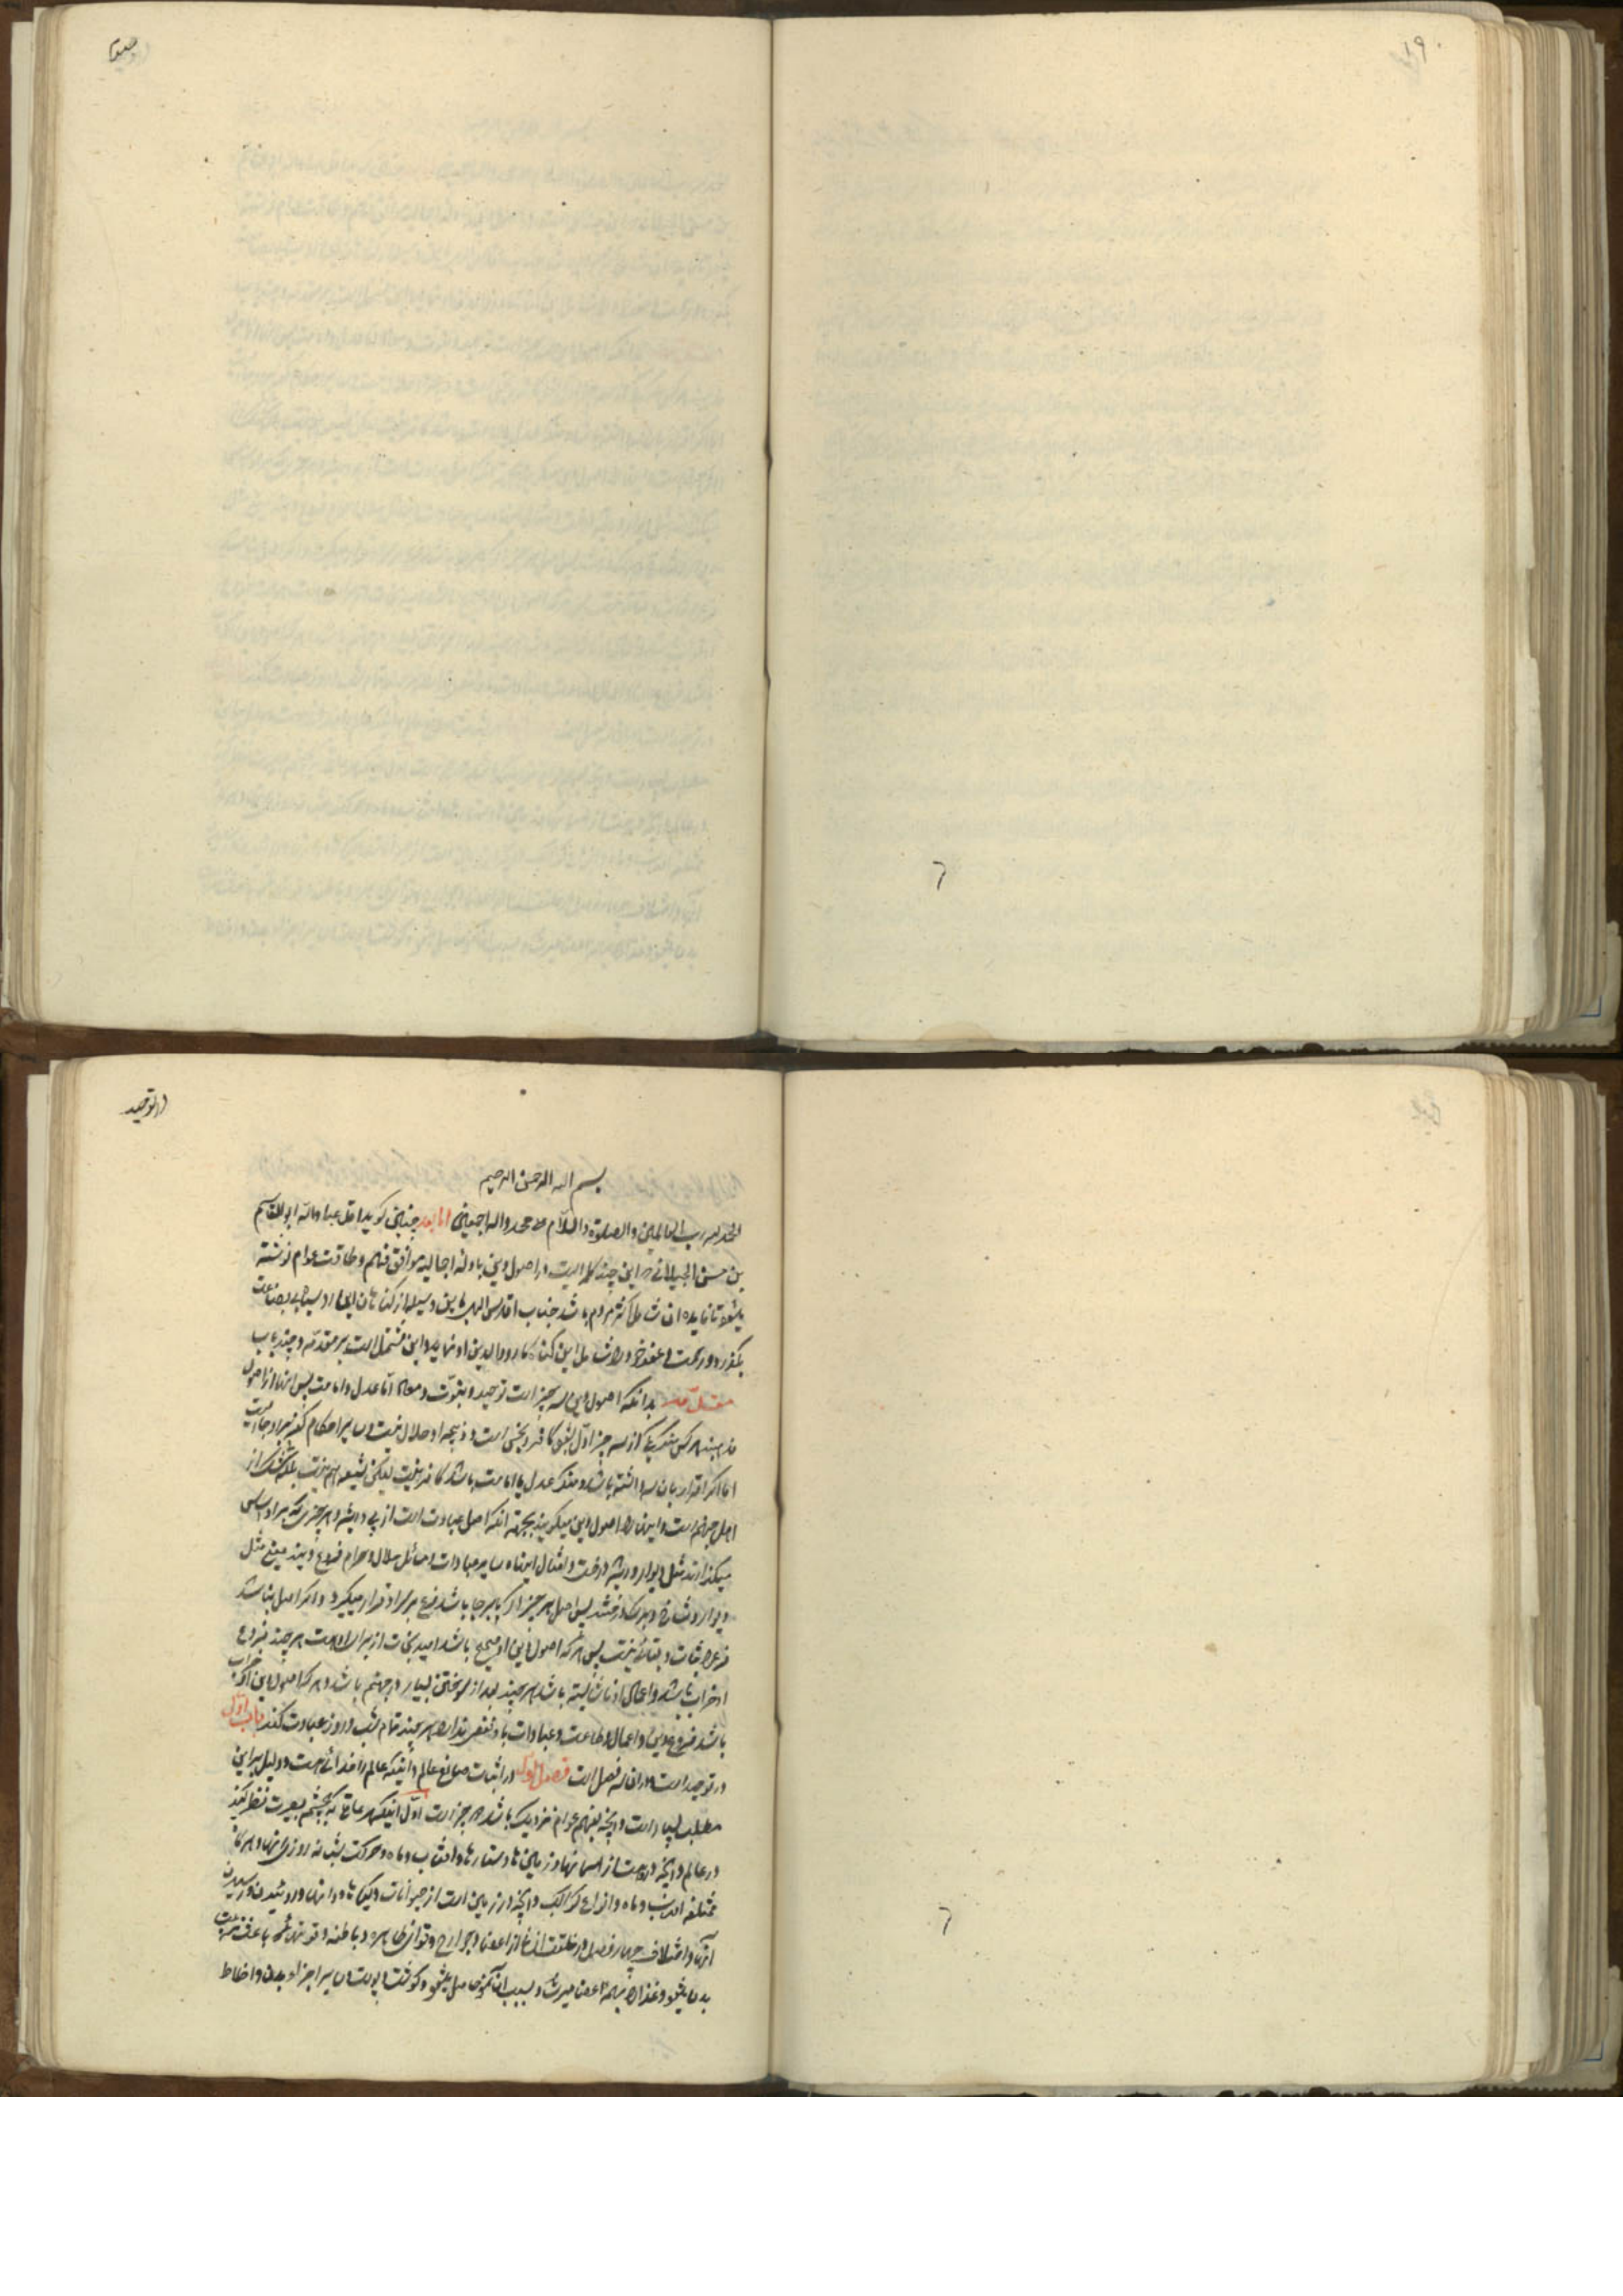 ۱۹۰
در توحید
بسم الله الرحمن الرحیم
الحمد لله رب العالمین والصلوة والسلام علی محمد واله اجمعین اما بعد چنین کوید اقل عباد الله ابو القاسم
بن حسن الجیلانی که این چند کلمه ایست در اصول دین بادله اجمالیه موافق فهم و طاقت عوام نوشته
میشود تا فایده ان شامل اکثر مردم باشد جناب اقدس الهی باین وسیله از کناهان این رو سیاه بی بضاعت
بکذرد و رحمت و عفو خود را شامل این کناه کار و والدین او نماید و این مشتمل است بر مقدمه و چند باب
مقدمه بدانکه اصول دین سه چیز است توحید و نبوت و معاد اما عدل و امامت پس اینها از اصول
مذهبند هر کس منکر یکی از سه چیز اول شود کافر و نجس است و ذبیحه او حلال نیست و سایر احکام کفر بر او جاریست
اما اکر اقرار بان سه داشته باشد و منکر عدل یا امامت باشد کافر نیست لیکن شیعه هم نیست بلکه
اهل جهنم است و اینها را اصول دین میکویند بجهة انکه اصل عبارت است از پی و ریشه و هر چیزی که بر او اساسی
میکذارند مثل دیوار و ریشه درخت و امثال اینها و سایر عبادات و مسائل حلال و حرام فروع دینند یعنی مثل
دیوار و شاخ و برک درختند پس اصل هر چیز اکر پا بر جا باشد فرع بر سر او قرار میکیرد و اکر اصل نباشد
فرع را ثبات و بقائی نیست پس هر که اصول دین او صحیح باشد امید نجات از برای او هست هر چند فروع
او خراب باشد و اعمال او ناشایسته باشد هر چند بعد از سوختن بسیار در جهنم باشد و هر که اصول دین او خراب
باشد فروع دین و اعمال و طاعت و عبادات باو نفعی ندارد هر چند تمام شب و روز عبادت کند باب اول
در توحید است و در ان سه فصل است فصل اول در اثبات صانع عالم و اینکه عالم را خدائی هست و دلیل بر این
مطلب بسیار است و انچه بفهم عوام نزدیک باشد دو چیز است اول اینکه هر عاقلی که بچشم بصیرت نظر کند
در عالم و انچه در اوست از اسمانها و زمین ها و ستاره ها و افتاب و ماه و حرکت شبانه روزی انها و
مختلفه افتاب و ماه و انواع کواکب و انچه در زمین است از حیوانات و کیاه ها و دانها و روئیدن و رسیدن
انها و اختلاف چهار فصل و خلقت انسان از اعضا و جوارح و قوای ظاهره و باطنه و قوتهائی که باعث تربیت
بدن میشود و غذا را بهمه اعضا میرساند و بسبب ان نمو حاصل میشود و کوشت و پوست و سایر اجزاء بدن و اخلاط